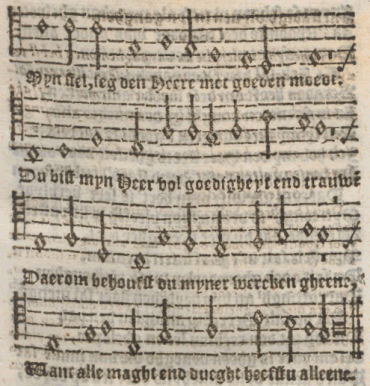 Myn siel, seg den Heere met goeden moedt:
Du bist myn Heer vol goedigheyt end trauwē
Daerom behoufst du myner wercken gheene,
Want alle maght end dueght heefstu alleene.